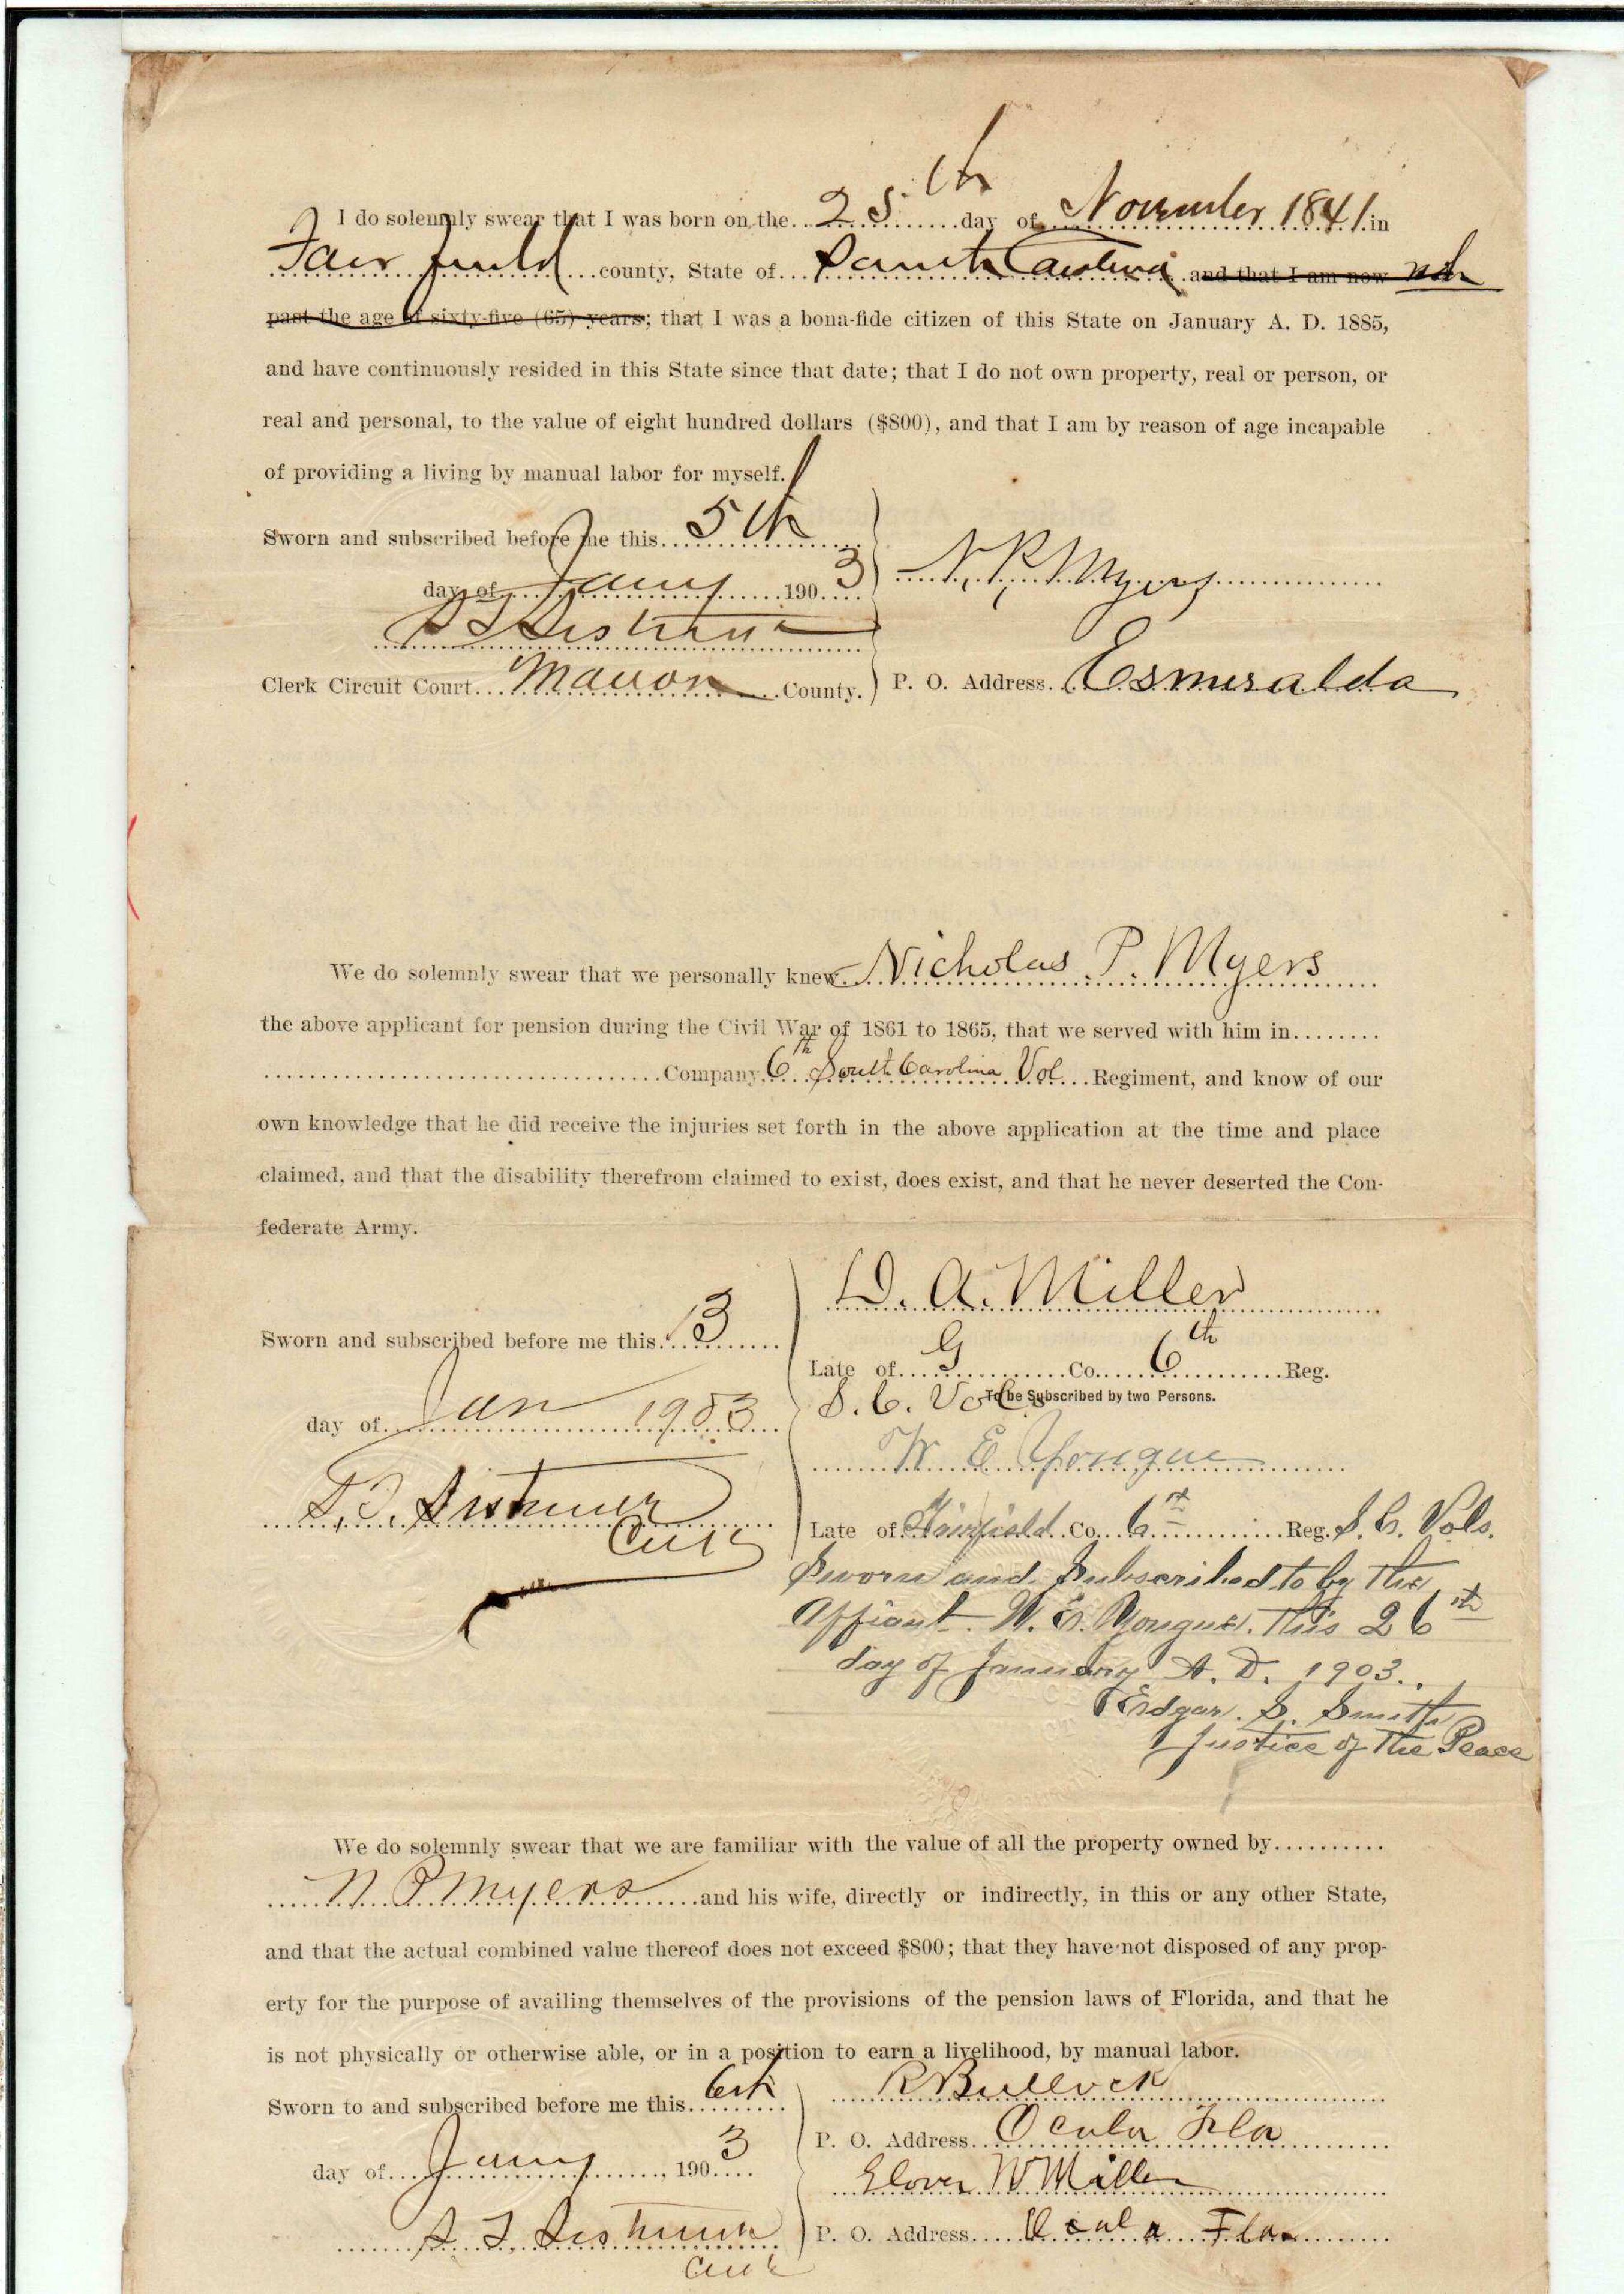 I do solemnly swear that I was born on the 25th day of November 1841 in
Fairfield county, State of South Carolina and that I am now
past the age of sixty-five (65) years; that I was a bona-fide citizen of this State on January A. D. 1885,
and have continuously resided in this State since that date; that I do not own property, real or person, or
real and personal, to the value of eight hundred dollars ($800), and that I am by reason of age incapable
of providing a living by manual labor for myself.
Sworn and subscribed before me this 5th
day of Jany 1903
N. P. Myers
Clerk Circuit Court Marion County.
P. O. Address. Esmeralda
We do solemnly swear that we personally knew Nicholas P. Myers
the above applicant for pension during the Civil War of 1861 to 1865, that we served with him in
Company, 6th South Carolina Vol Regiment, and know of our
own knowledge that he did receive the injuries set forth in the above application at the time and place
claimed, and that the disability therefrom claimed to exist, does exist, and that he never deserted the Con-
federate Army.
D. A. Miller
Sworn and subscribed before me this 13
Late of G Co. 6th Reg.
S. C. Vols
To be Subscribed by two Persons.
day of Jan 1903
W E Yongue
Clerk
Late of Fairfield Co. 6th Reg. S. C. Vols.
Sworn and Subscribed to by the
Affiant W. E. Yongue. this 26th
day of January A. D. 1903.
Edgar. S. Smith
Justice of the Peace
We do solemnly swear that we are familiar with the value of all the property owned by
N P Myers and his wife, directly or indirectly, in this or any other State,
and that the actual combined value thereof does not exceed $800; that they have not disposed of any prop-
erty for the purpose of availing themselves of the provisions of the pension laws of Florida, and that he
is not physically or otherwise able, or in a position to earn a livelihood, by manual labor.
Sworn to and subscribed before me this 6th
R Bullock
P. O. Address. Ocala Fla
day of Jany, 1903
W Miller
P. O. Address. Ocala Fla
Clerk